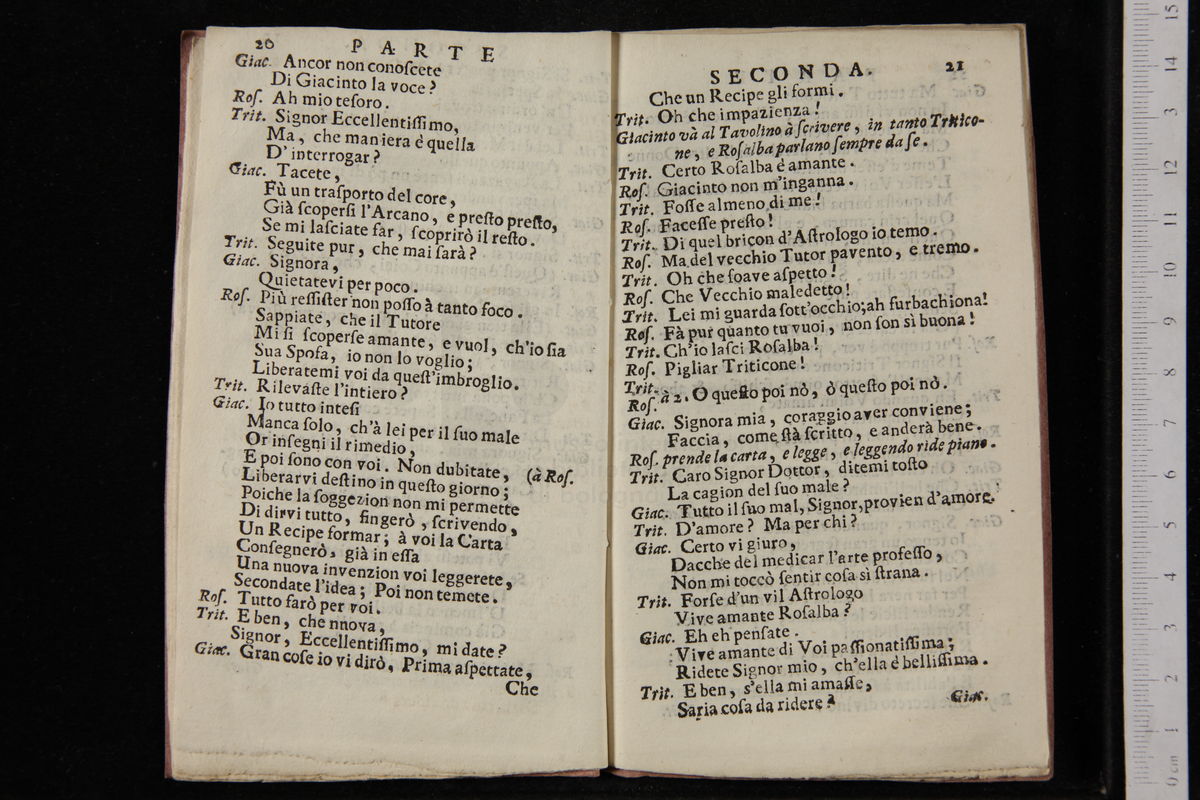 20 PARTE
Giac. Ancor non conoſcete
Di Giacinto la voce?
Roſ. Ah mio teſoro.
Trit. Signor Eccellentiſſimo,
Ma, che maniera è quella
D'interrogar?
Giac. Tacete,
Fù un traſporto del core,
Già ſcoperſi l'Arcano, e preſto preſto,
Se mi laſciate far, ſcoprirò il reſto.
Trit. Seguite pur, che mai ſarà?
Giac. Signora,
Quietatevi per poco.
Roſ. Più reſſiſter non poſſo à tanto foco.
Sappiate, che il Tutore
Mi ſi ſcoperſe amante, e vuol, ch'io ſia
Sua Spoſa, io non lo voglio;
Liberatemi voi da queſt'imbroglio.
Trit. Rilevaſte l'intiero?
Giac. Io tutto inteſi
Manca ſolo, ch'à lei per il ſuo male
Or inſegni il rimedio,
E poi ſono con voi. Non dubitate, (à Roſ.
Liberarvi deſtino in queſto giorno;
Poiche la ſoggezion non mi permette
Di dirvi tutto, fingerò, ſcrivendo,
Un Recipe formar; à voi la Carta
Conſegnerò, già in eſſa
Una nuova invenzion voi leggerete,
Secondate l'idea; Poi non temete.
Roſ. Tutto farò per voi.
Trit. E ben, che nuova,
Signor, Eccellentiſſimo, mi date?
Giac. Gran coſe io vi dirò, Prima aſpettate,
Che
SECONDA. 21
Che un Recipe gli formi.
Trit. Oh che impazienza!
Giacinto và al Tavolino à ſcrivere, in tanto Tritico-
ne, e Roſalba parlano ſempre da ſe.
Trit. Certo Roſalba è amante.
Roſ. Giacinto non m'inganna.
Trit. Foſſe almeno di me!
Roſ. Faceſſe preſto!
Trit. Di quel bricon d'Aſtrologo io temo.
Roſ. Ma del vecchio Tutor pavento, e tremo.
Trit. Oh che ſoave aſpetto!
Roſ. Che Vecchio maledetto!
Trit. Lei mi guarda ſott'occhio; ah furbachiona!
Roſ. Fà pur quanto tu vuoi, non ſon sì buona!
Trit. Ch'io laſci Roſalba!
Roſ. Pigliar Triticone!
Trit.
Roſ. à 2. O queſto poi nò, ò queſto poi nò.
Giac. Signora mia, coraggio aver conviene;
Faccia, come ſtà ſcritto, e anderà bene.
Roſ. prende la carta, e legge, e leggendo ride piano.
Trit. Caro Signor Dottor, ditemi toſto
La cagion del ſuo male?
Giac. Tutto il ſuo mal, Signor, provien d'amore.
Trit. D'amore? Ma per chi?
Giac. Certo vi giuro,
Dacche del medicar l'arte profeſſo,
Non mi toccò ſentir coſa sì ſtrana.
Trit. Forſe d'un vil Aſtrologo
Vive amante Roſalba?
Giac. Eh eh penſate.
Vive amante di Voi paſſionatiſſima;
Ridete Signor mio, ch'ella è belliſſima.
Trit. E ben, s'ella mi amaſſe,
Saria coſa da ridere?
Giac.